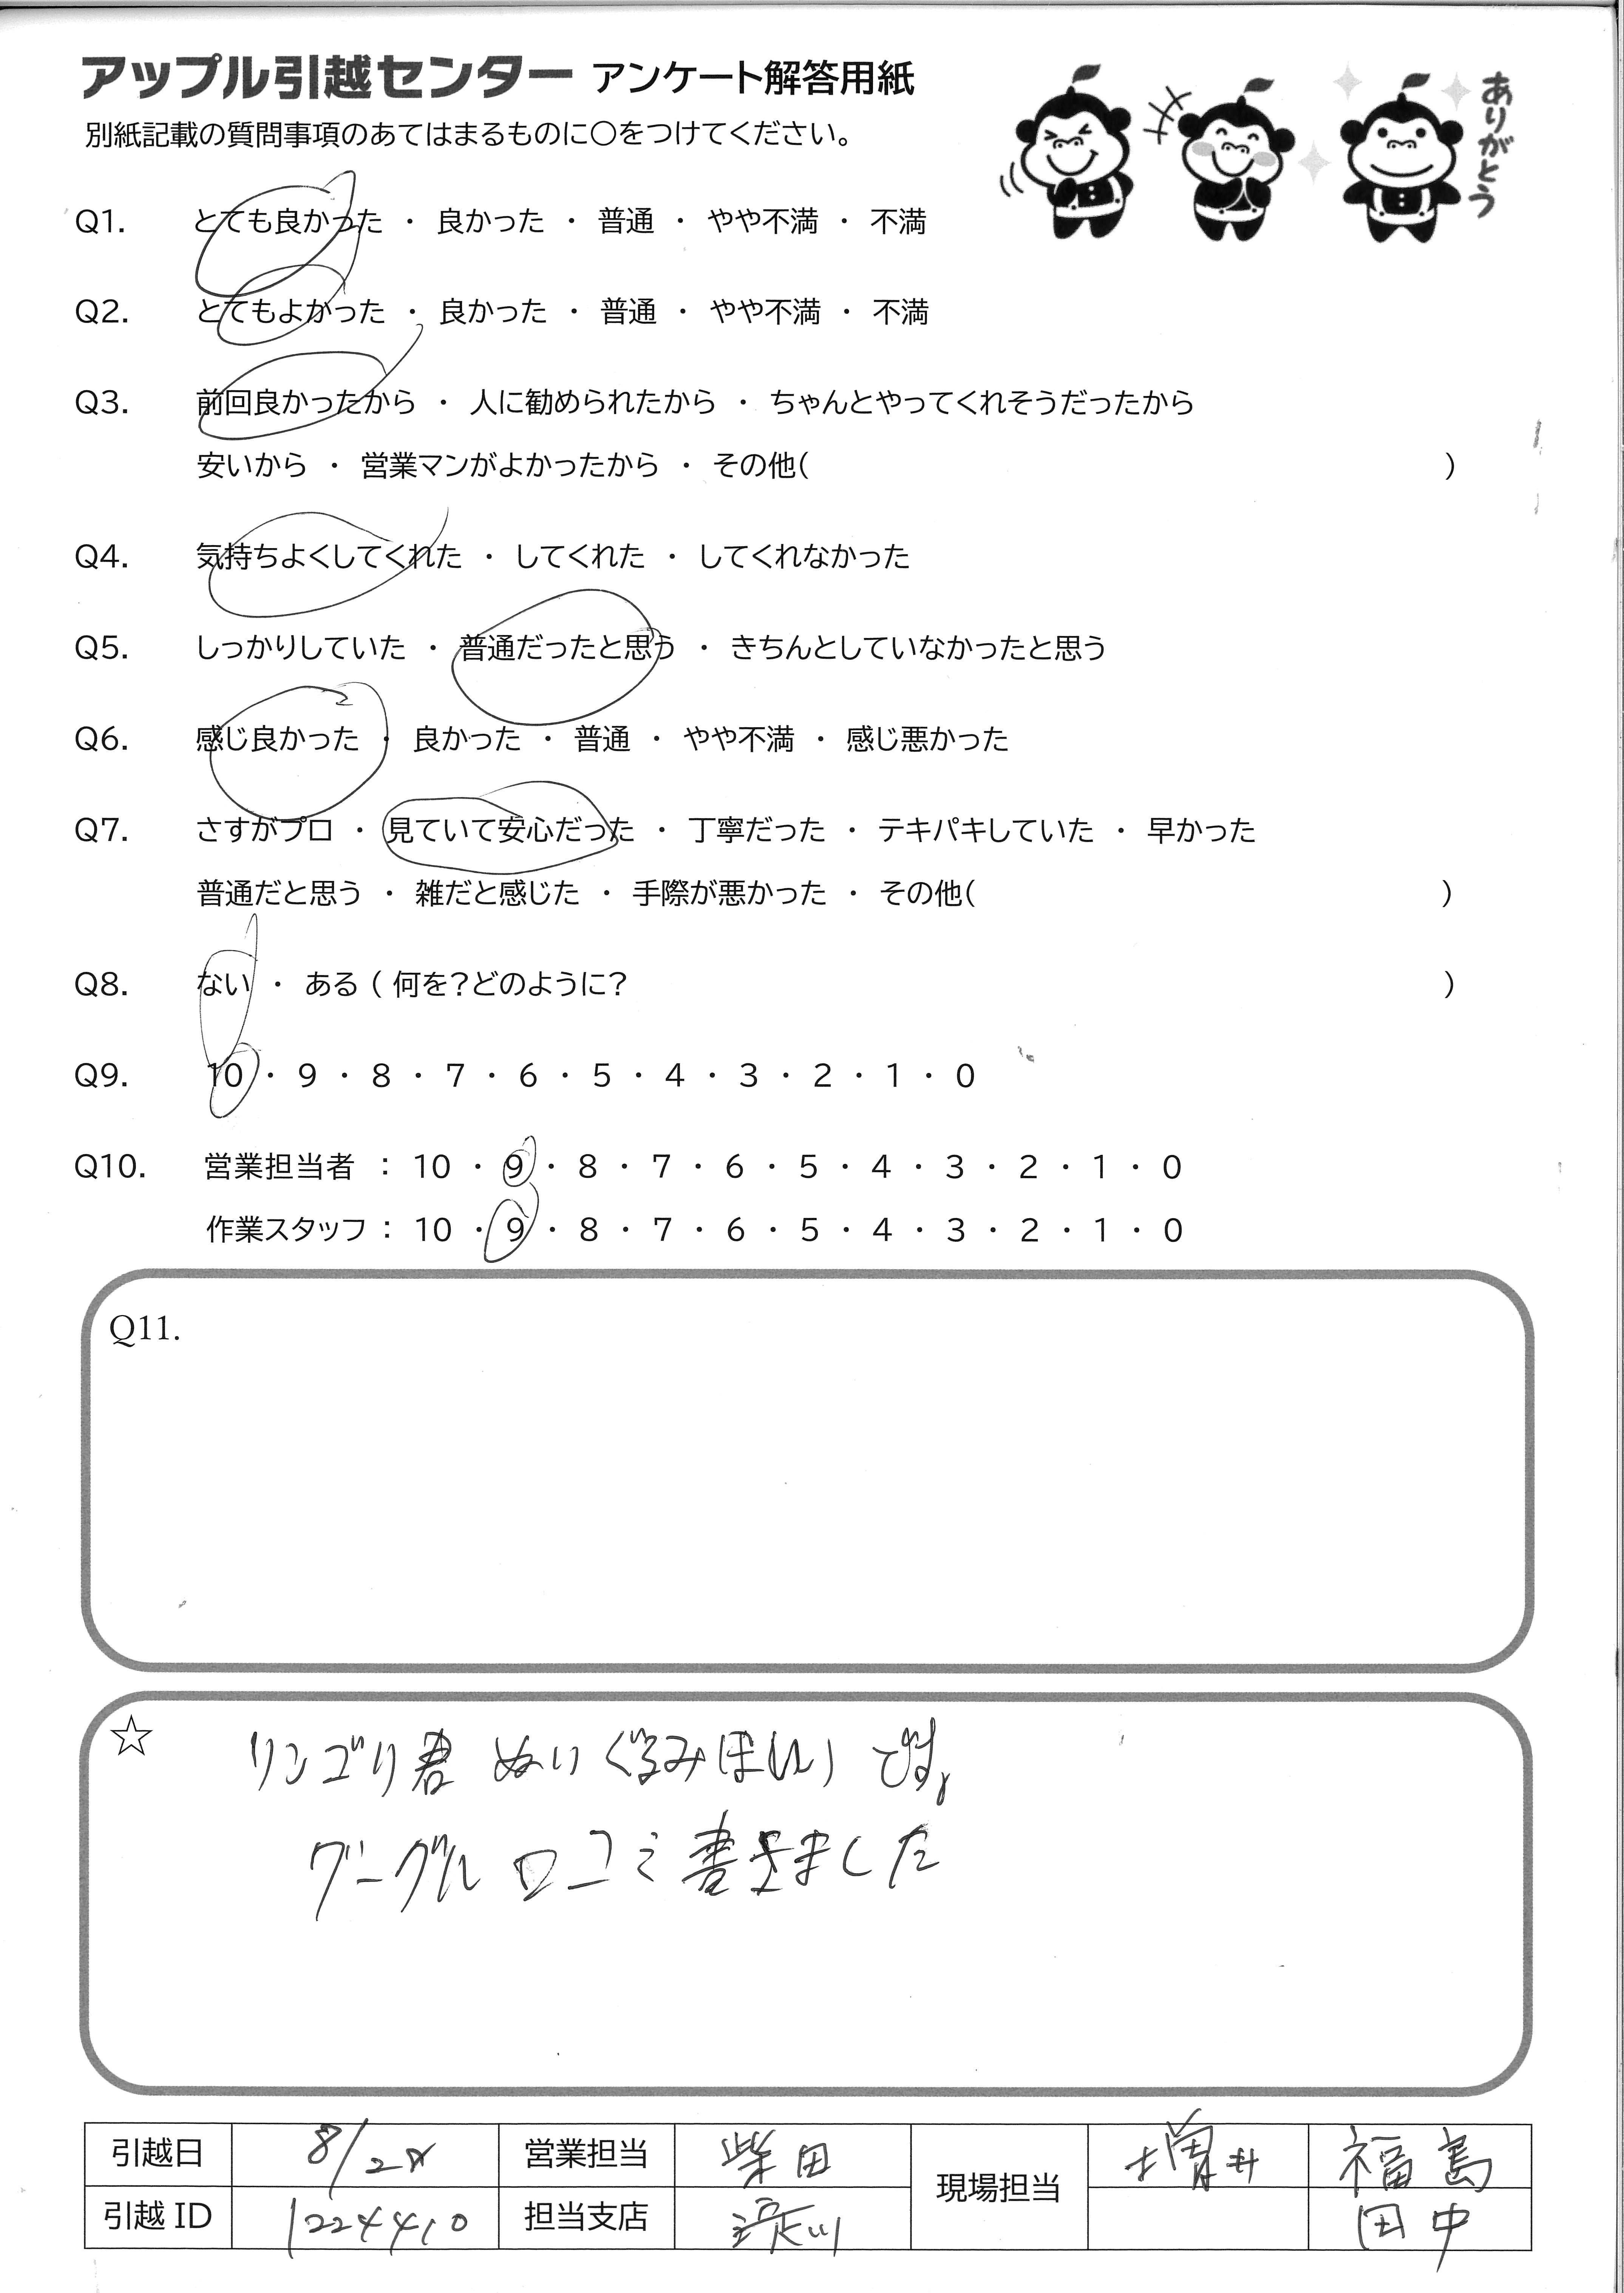 アップル引越センター アンケート解答用紙
ありがとう
別紙記載の質問事項のあてはまるものに○をつけてください。
Q1. とても良かった ・ 良かった ・ 普通 ・ やや不満 ・ 不満
Q2. とてもよかった ・ 良かった ・ 普通 ・ やや不満 ・ 不満
Q3. 前回良かったから ・ 人に勧められたから ・ ちゃんとやってくれそうだったから
安いから ・ 営業マンがよかったから ・ その他( )
Q4. 気持ちよくしてくれた ・ してくれた ・ してくれなかった
Q5. しっかりしていた ・ 普通だったと思う ・ きちんとしていなかったと思う
Q6. 感じ良かった ・ 良かった ・ 普通 ・ やや不満 ・ 感じ悪かった
Q7. さすがプロ ・ 見ていて安心だった ・ 丁寧だった ・ テキパキしていた ・ 早かった
普通だと思う ・ 雑だと感じた ・ 手際が悪かった ・ その他( )
Q8. ない ・ ある ( 何を?どのように? )
Q9. 10 ・ 9 ・ 8 ・ 7 ・ 6 ・ 5 ・ 4 ・ 3 ・ 2 ・ 1 ・ 0
Q10. 営業担当者 : 10 ・ 9 ・ 8 ・ 7 ・ 6 ・ 5 ・ 4 ・ 3 ・ 2 ・ 1 ・ 0
作業スタッフ : 10 ・ 9 ・ 8 ・ 7 ・ 6 ・ 5 ・ 4 ・ 3 ・ 2 ・ 1 ・ 0
Q11.
☆ リンゴリ君 ぬいぐるみほしいです。
グーグル口コミ書きました
引越日 8/28 営業担当 柴田 現場担当 増井 福島
引越 ID 1224410 担当支店 淀川 田中